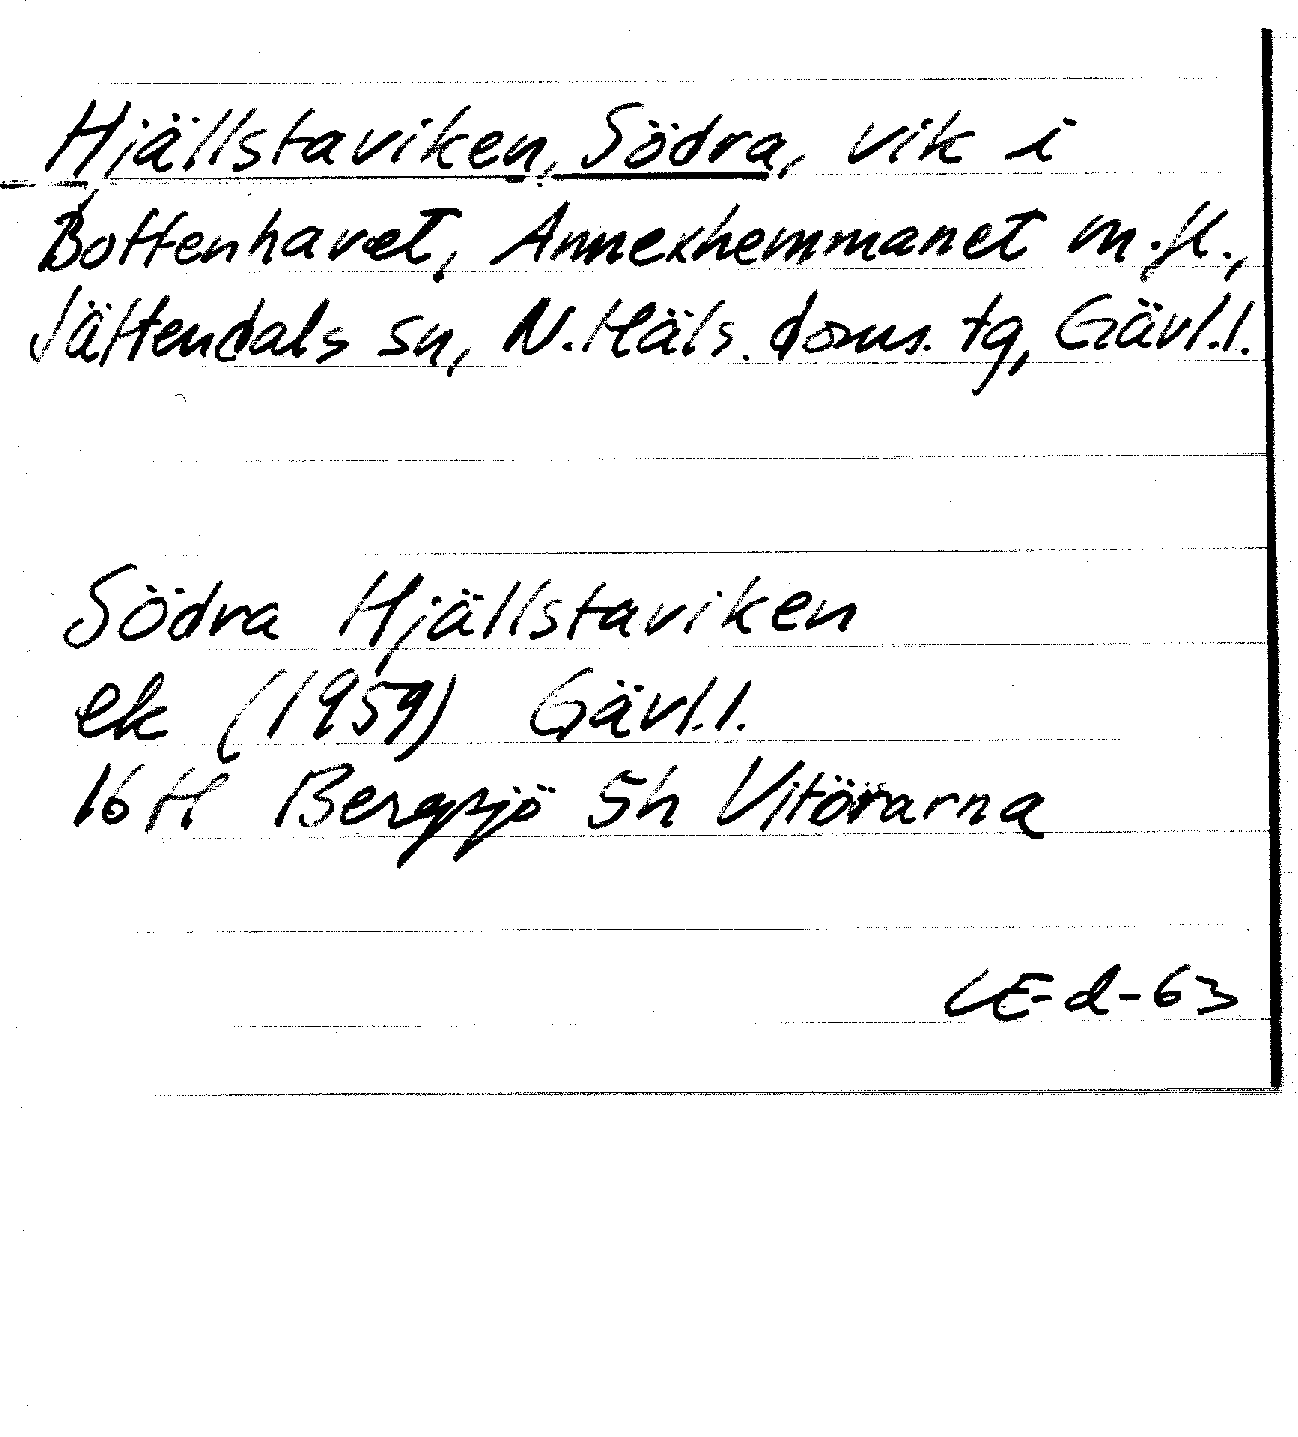 Hjällstaviken, Södra, vik i
Bottenhavet, Annexhemmanet m.fl.,
Jättendals sn, N.Häls. doms. tg, Gävl.l.
Södra Hjällstaviken
ek (1959) Gävl.l.
16 H Bergsjö 5h Vitörarna
LE-d-63